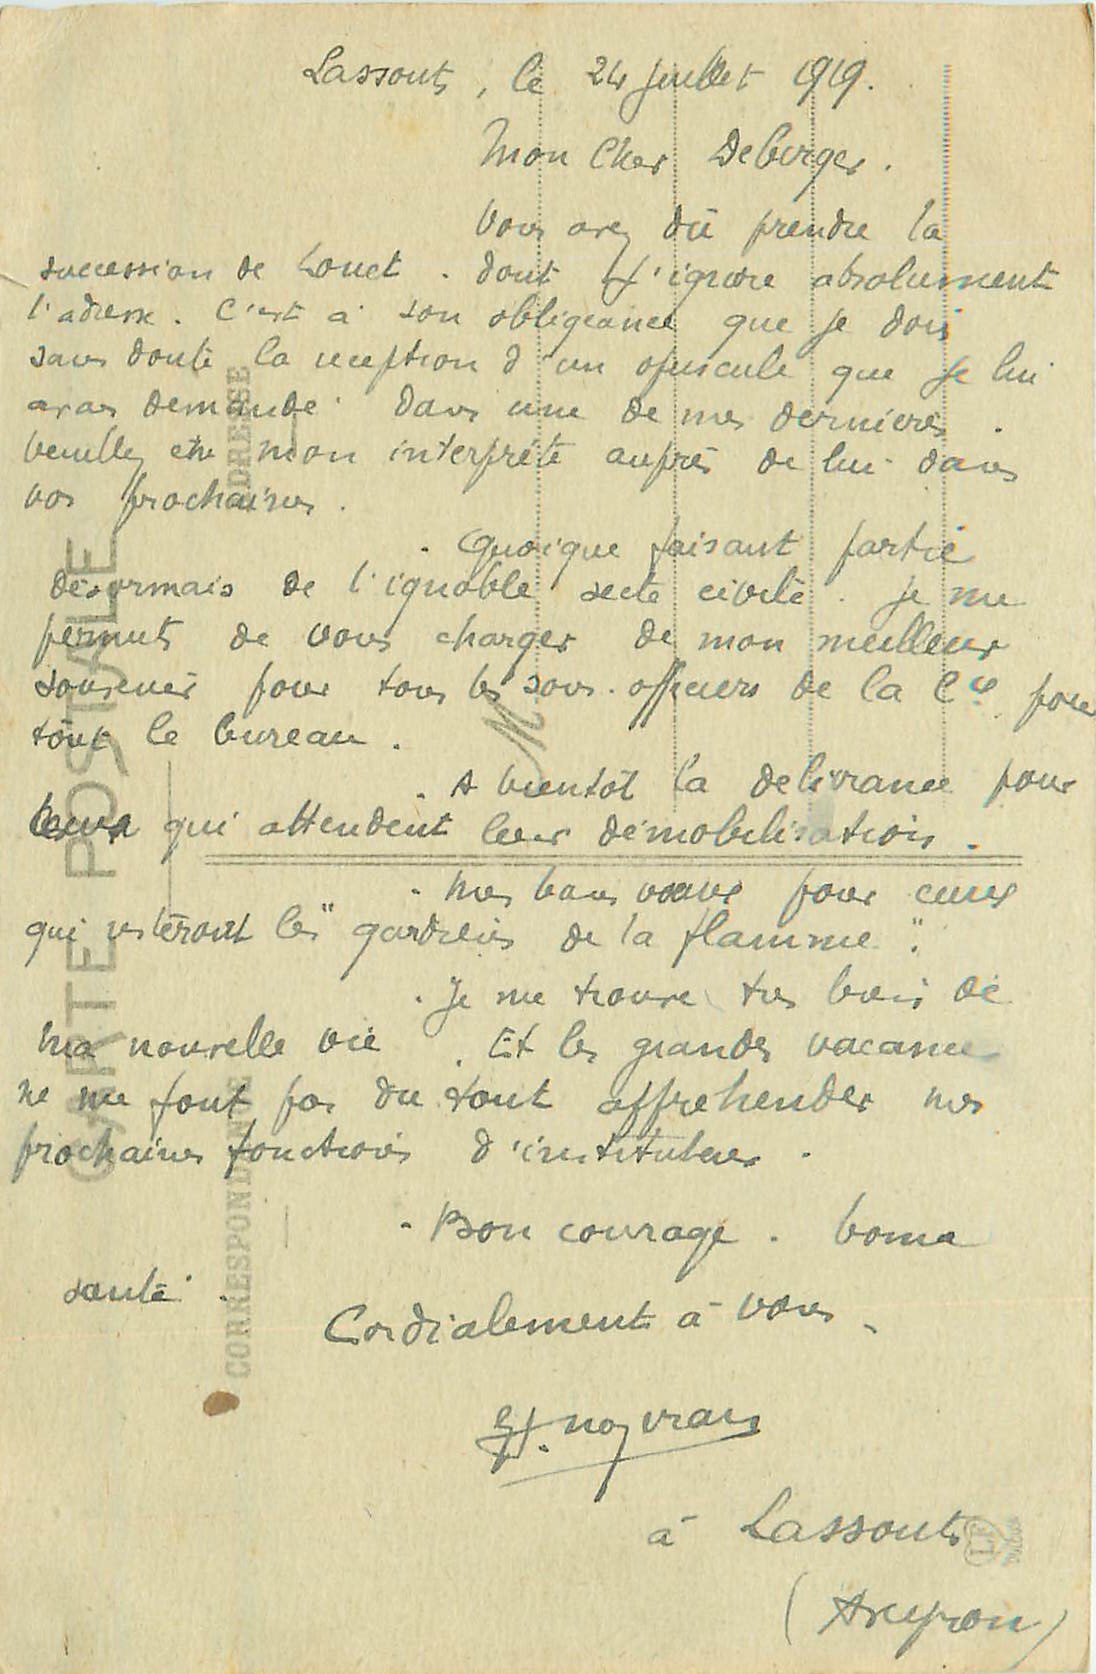 Lassouts, le 24 Juillet 1919.
Mon Cher Deberger.
Vous avez dû prendre la
succession de Louet. dont j'ignore absolument
l'adresse. C'est à son obligeance que je dois
sans doute la réception d'un opuscule que je lui
avais demandé dans une de mes dernières.
Veuillez être mon interprète auprès de lui dans
vos prochaines.
. Quoique faisant partie
désormais de l'ignoble secte civile. Je me
permets de vous charger de mon meilleur
souvenir pour tous les sous-officiers de la Cie pour
tout le bureau.
. A bientôt la délivrance pour
ceux qui attendent leur démobilisation.
. Mes bons vœux pour ceux
qui resteront les "gardiens de la flamme".
. Je me trouve très bien de
ma nouvelle vie. Et les grandes vacances
ne me font pas du tout appréhender mes
prochaines fonctions d'instituteur.
. Bon courage. bonne
santé.
Cordialement à vous.
à Lassouts
(Aveyron)
CARTE POSTALE
CORRESPONDANCE
ADRESSE
M